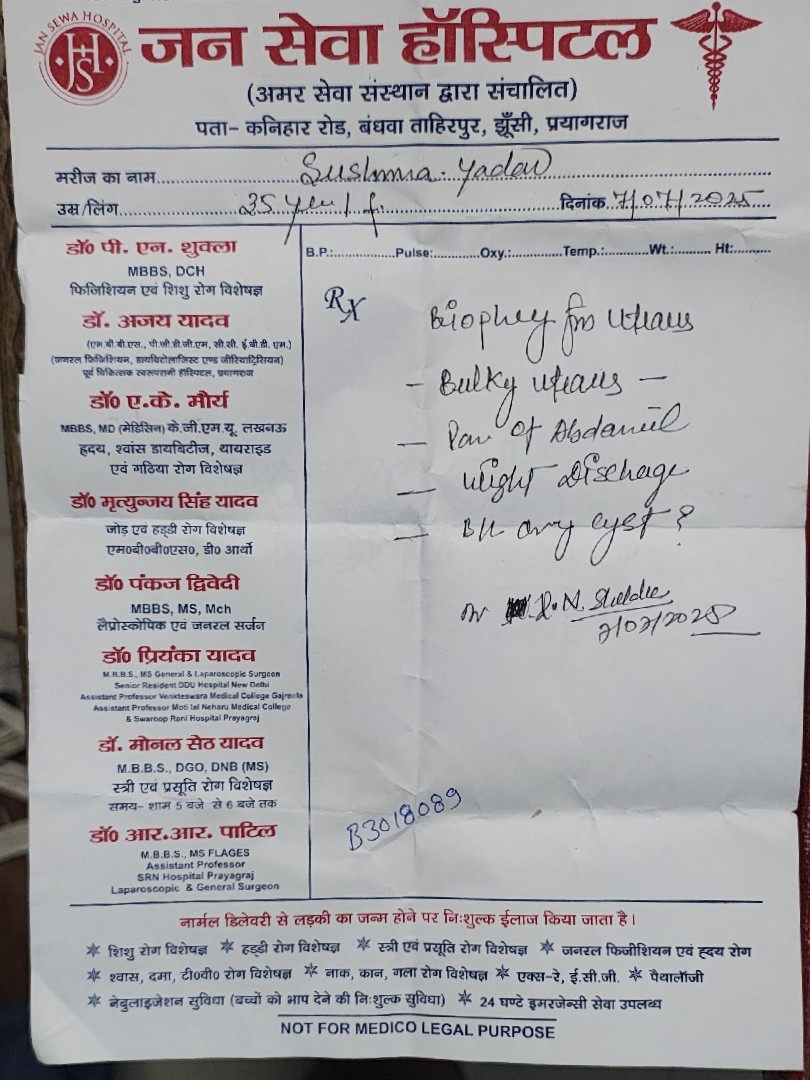 JAN SEWA HOSPITAL
JHS
जन सेवा हॉस्पिटल
(अमर सेवा संस्थान द्वारा संचालित)
पता- कनिहार रोड, बंधवा ताहिरपुर, झूँसी, प्रयागराज
मरीज का नाम Sushma Yadav
उम्र/लिंग 35 year/f. दिनांक 7/07/2025
B.P.: Pulse: Oxy.: Temp.: Wt.: Ht:
डॉ० पी. एन. शुक्ला
MBBS, DCH
फिजिशियन एवं शिशु रोग विशेषज्ञ
डॉ. अजय यादव
(एम बी बी एस., पी.जी.डी.जी.एम, सी.सी. ई.बी.डी. एम.)
(जनरल फिजिशियन, डायबिटोलाजिस्ट एण्ड जीरियाट्रिसियन)
पूर्व चिकित्सक स्वरूपरानी हॉस्पिटल, प्रयागराज
डॉ० ए.के. मौर्य
MBBS, MD (मेडिसिन) के.जी.एम.यू. लखनऊ
हृदय, श्वांस डायबिटीज, थायराइड
एवं गठिया रोग विशेषज्ञ
डॉ० मृत्युन्जय सिंह यादव
जोड़ एवं हड्डी रोग विशेषज्ञ
एम०बी०बी०एस०, डी० आर्थो
डॉ० पंकज द्विवेदी
MBBS, MS, Mch
लैप्रोस्कोपिक एवं जनरल सर्जन
डॉ० प्रियंका यादव
M.B.B.S., MS General & Laparoscopic Surgeon
Senior Resident DDU Hospital New Delhi
Assistant Professor Venkteswara Medical College Gajraula
Assistant Professor Moti lal Neharu Medical College
& Swaroop Rani Hospital Prayagraj
डॉ. मोनल सेठ यादव
M.B.B.S., DGO, DNB (MS)
स्त्री एवं प्रसूति रोग विशेषज्ञ
समय- शाम 5 बजे से 6 बजे तक
डॉ० आर.आर. पाटिल
M.B.B.S., MS FLAGES
Assistant Professor
SRN Hospital Prayagraj
Laparoscopic & General Surgeon
Rx
for uterus
- Bulky uterus -
- of
- Discharge
- cyst?
B3018089
नार्मल डिलेवरी से लड़की का जन्म होने पर निःशुल्क ईलाज किया जाता है।
* शिशु रोग विशेषज्ञ * हड्डी रोग विशेषज्ञ * स्त्री एवं प्रसूति रोग विशेषज्ञ * जनरल फिजीशियन एवं हृदय रोग
* श्वास, दमा, टी०वी० रोग विशेषज्ञ * नाक, कान, गला रोग विशेषज्ञ * एक्स-रे, ई.सी.जी. * पैथालॉजी
* नेबुलाइजेशन सुविधा (बच्चों को भाप देने की निःशुल्क सुविधा) * 24 घण्टे इमरजेन्सी सेवा उपलब्ध
NOT FOR MEDICO LEGAL PURPOSE